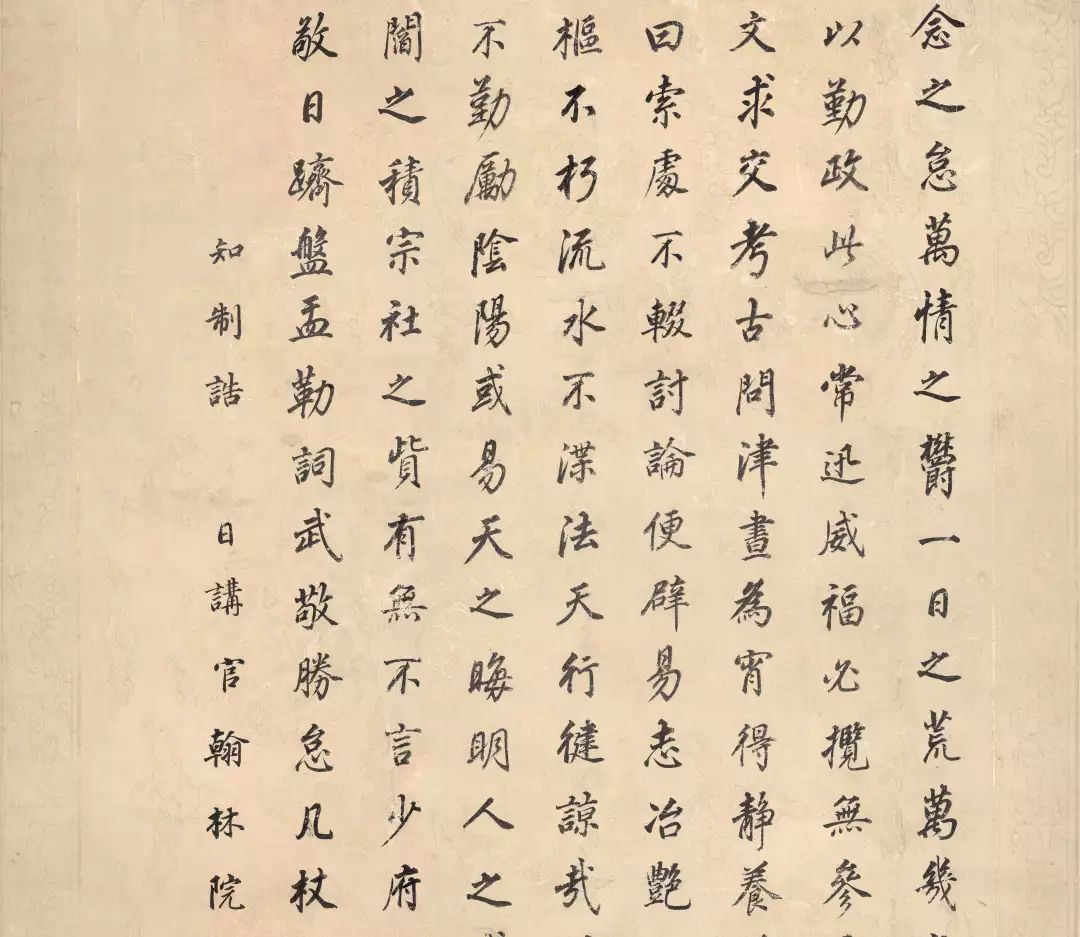 念之怠萬情之欝一日之荒萬幾
以勤政此心常迅威福必攬無參
文求交考古問津晝為宵得靜養
曰索處不輟討論便辟易志冶艷
樞不朽流水不渫法天行健諒哉
不勤勵陰陽或易天之晦明人之
閻之積宗社之貲有無不言少府
敬日躋盤盂勒詞武敬勝怠几杖
知制誥 日講官翰林院